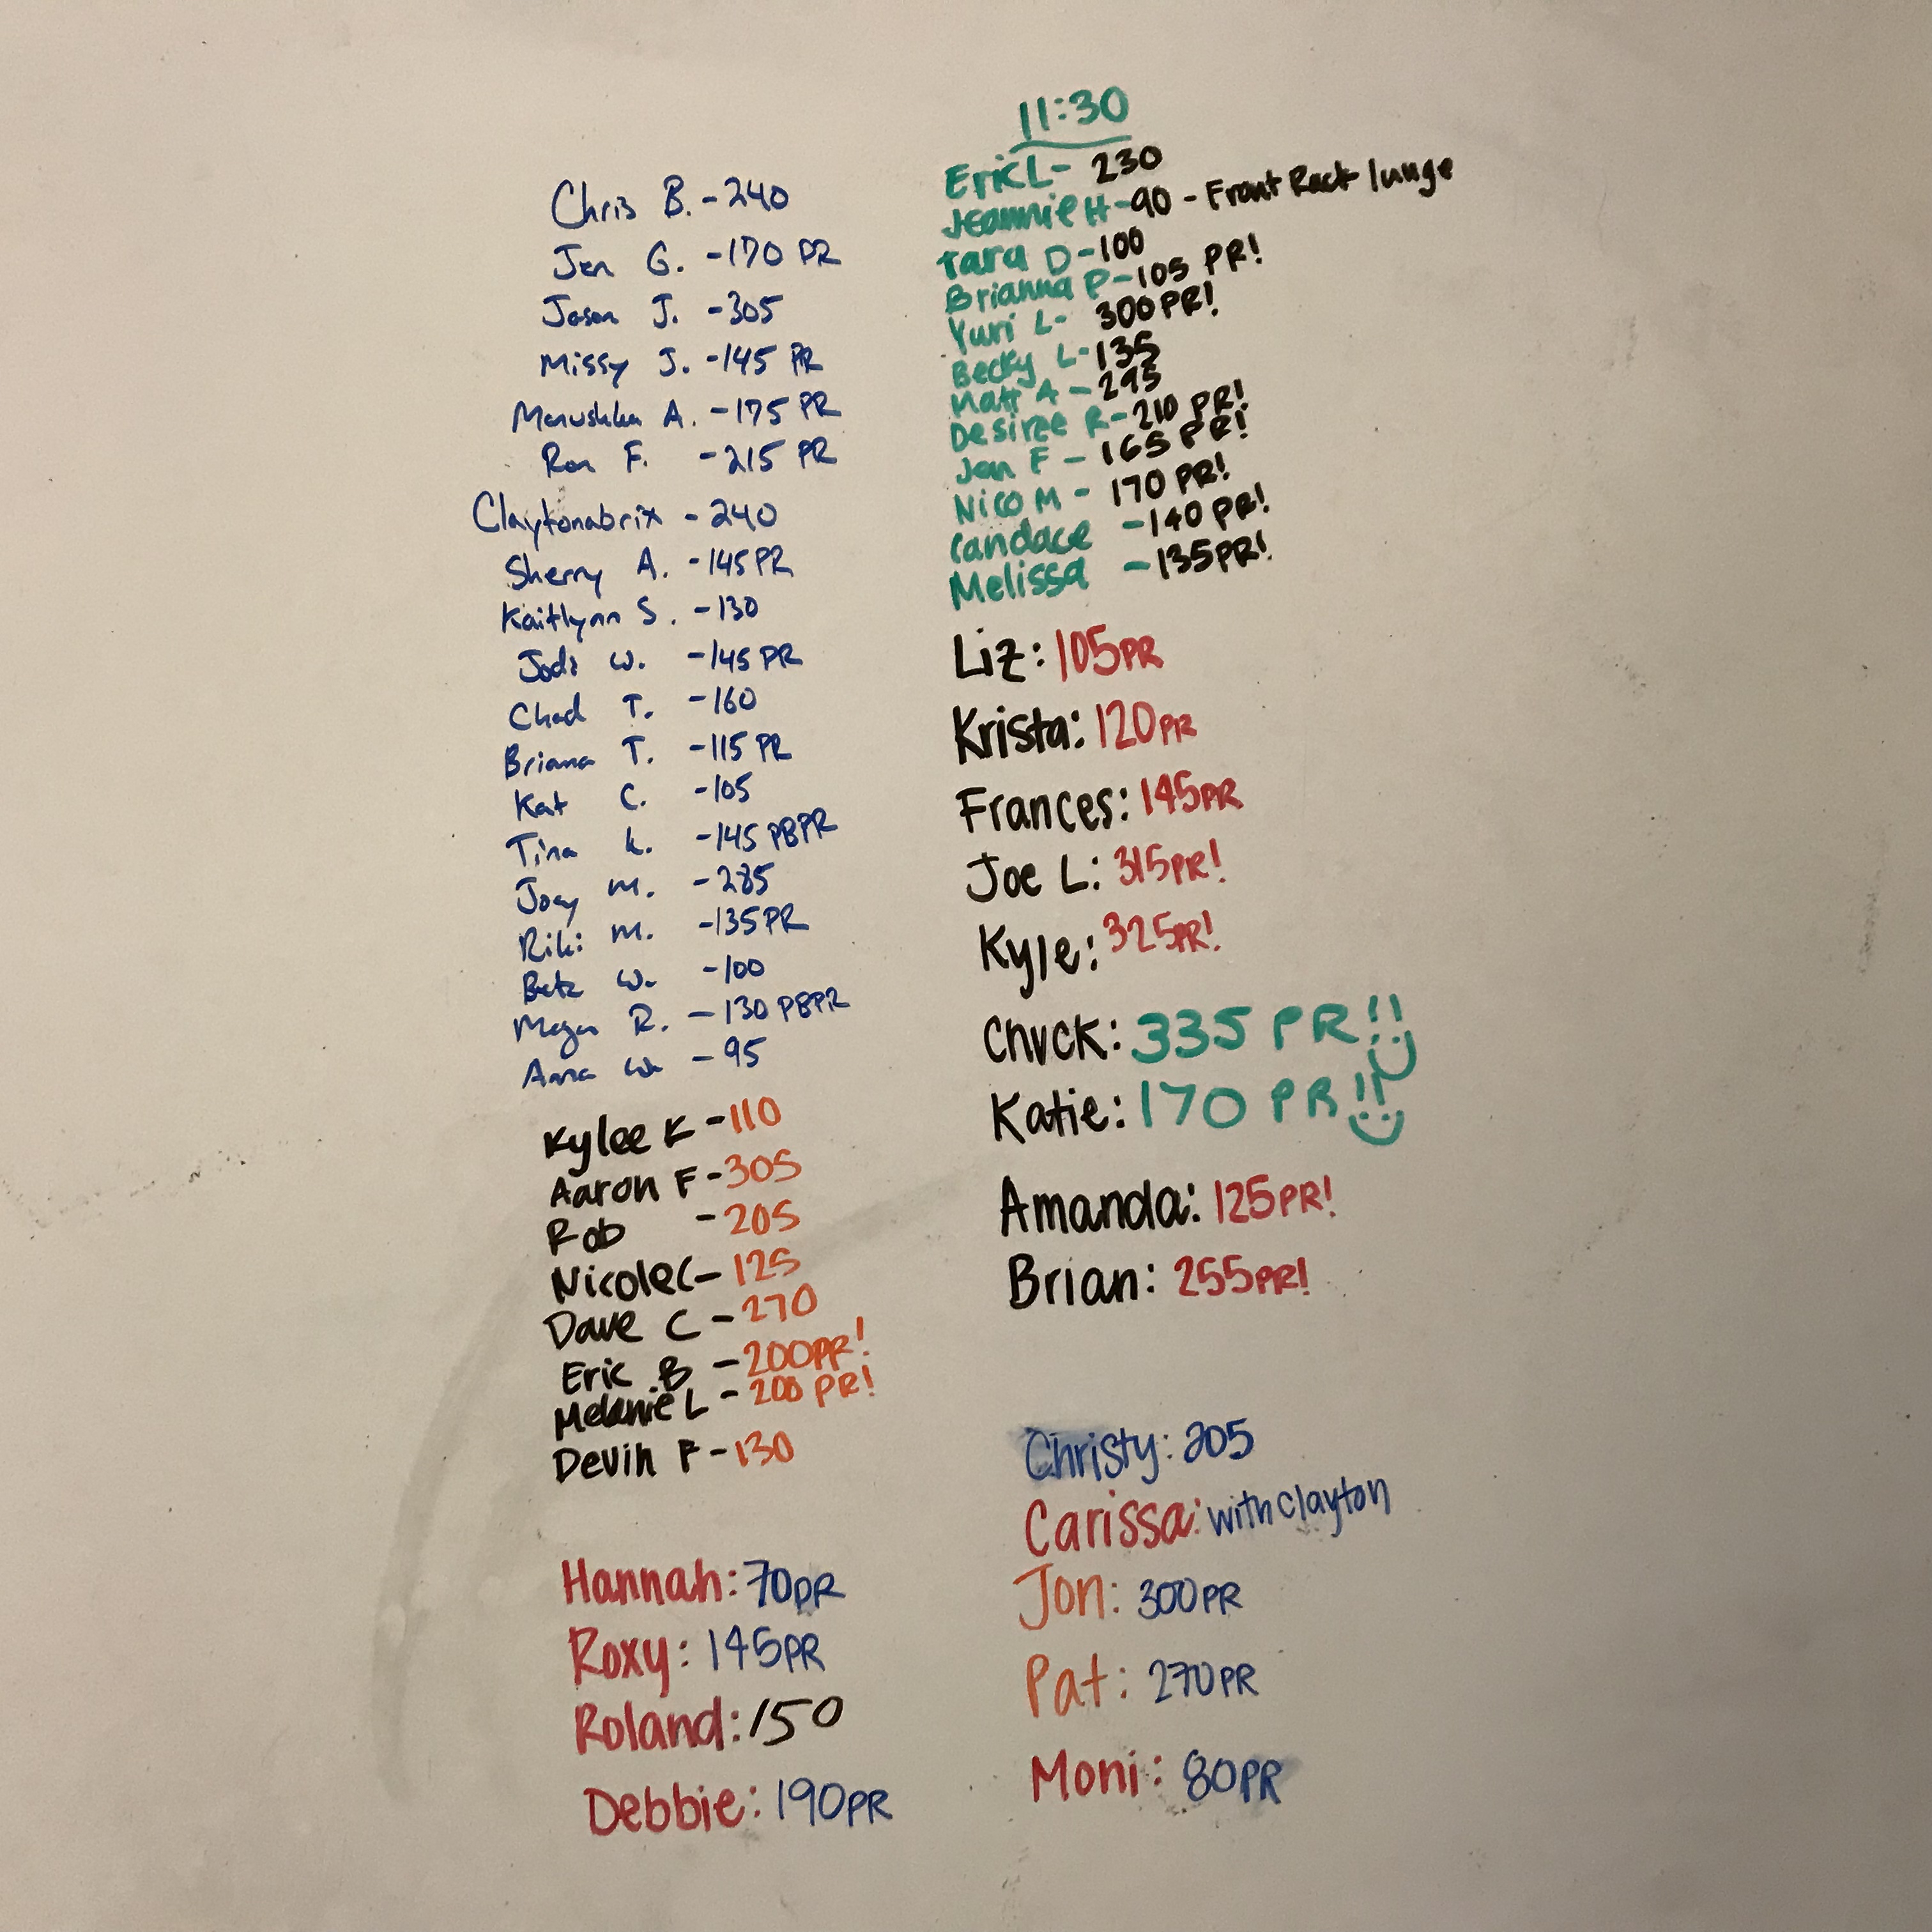 Chris B. - 240
Jen G. - 170 PR
Jason J. - 305
Missy J. - 145 PR
Manushka A. - 175 PR
Ron F. - 215 PR
Claytonabrix - 240
Sherry A. - 145 PR
Kaitlynn S. - 130
Jodi W. - 145 PR
Chad T. - 160
Briana T. - 115 PR
Kat C. - 105
Tina K. - 145 PBPR
Joey M. - 285
Riki M. - 135 PR
W. - 100
Megan R. - 130 PBPR
Anna W - 95
Kylee K - 110
Aaron F - 305
Rob - 205
Nicole C - 125
Dave C - 270
Eric B - 200PR!
Melanie L - 200 PR!
Devin F - 130
Hannah: 70PR
Roxy: 145PR
Roland: 150
Debbie: 190PR
11:30
Eric L - 230
Jeannie H - 90 - Front Rack lunge
Tara D - 100
Brianna P - 105 PR!
Yuri L - 300 PR!
Becky L - 135
Matt A - 295
Desiree R - 210 PR!
Jen F - 165 PR!
Nico M - 170 PR!
Candace - 140 PR!
Melissa - 135PR!
Liz: 105PR
Krista: 120PR
Frances: 145PR
Joe L: 315PR!
Kyle: 325PR!
Chuck: 335 PR!!
Katie: 170 PR!!
Amanda: 125PR!
Brian: 255PR!
Christy: 205
Carissa: with clayton
Jon: 300PR
Pat: 270PR
Moni: 80PR